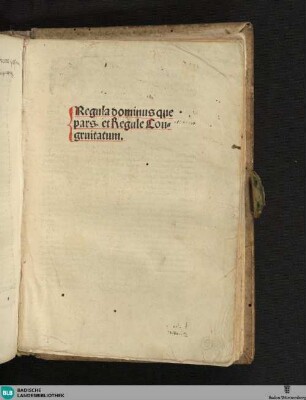 Regula dominus que
pars. et Regule Con-
gruitatum.
BLB
BADISCHE
LANDESBIBLIOTHEK
Baden-Württemberg